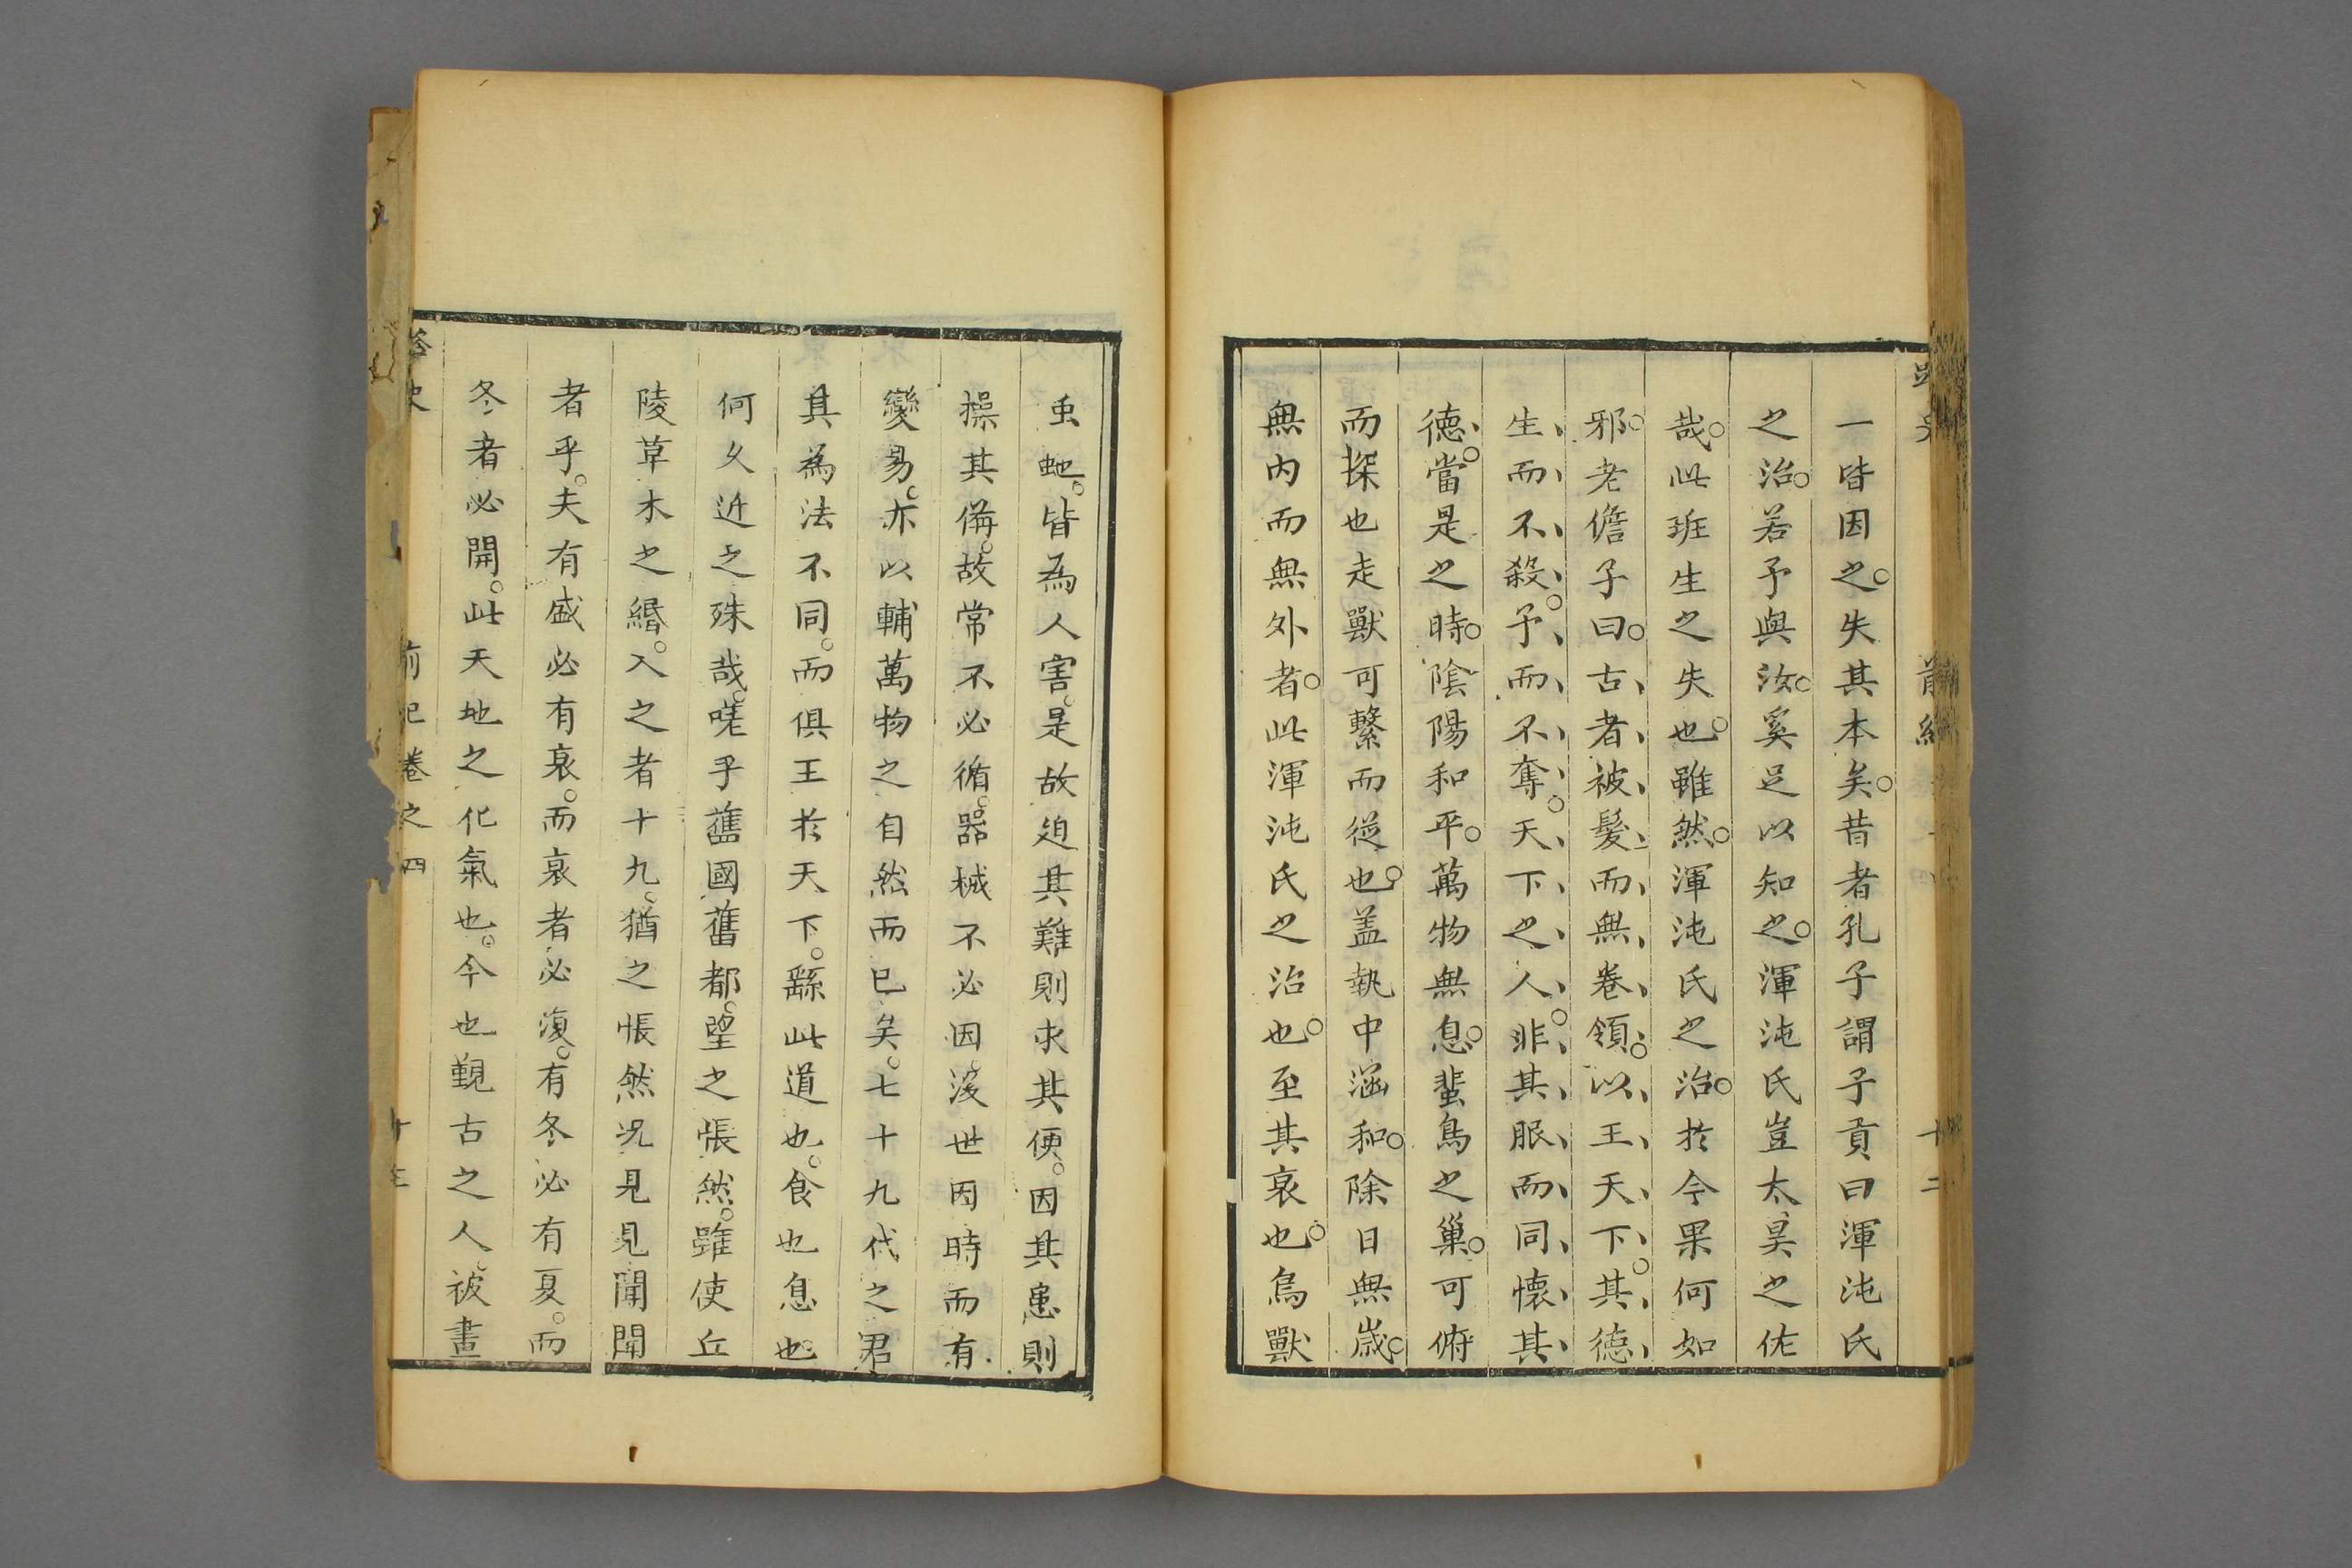 一皆因之。失其本矣。昔者孔子謂子貢曰渾沌氏
之治。若予與汝。奚足以知之。渾沌氏豈太昊之佐
哉。此班生之失也。雖然。渾沌氏之治。於今果何如
邪。老儋子曰。古者被髮而無卷領。以王天下。其德
生而不殺。予而不奪。天下之人。非其服而同懷其
德。當是之時。陰陽和平。萬物無息。蜚鳥之巢。可俯
而探也走獸可繫而從也。盖執中涵和。除日無歲。
無內而無外者。此渾沌氏之治也。至其哀也。鳥獸
虫虵。皆為人害。是故迫其難則求其便。因其患則
操其備。故常不必循。器械不必因。後世因時而有
變易。亦以輔萬物之自然而已矣。七十九代之君
其為法不同。而俱王於天下。繇此道也。食也息也
何久近之殊哉。嗟乎舊國舊都。望之悵然。雖使丘
陵草木之緡。入之者十九。猶之悵然况見見聞聞
者乎。夫有盛必有哀。而哀者必復。有冬必有夏。而
冬者必開。此天地之化氣也。今也觀古之人。被畫
前紀卷之四